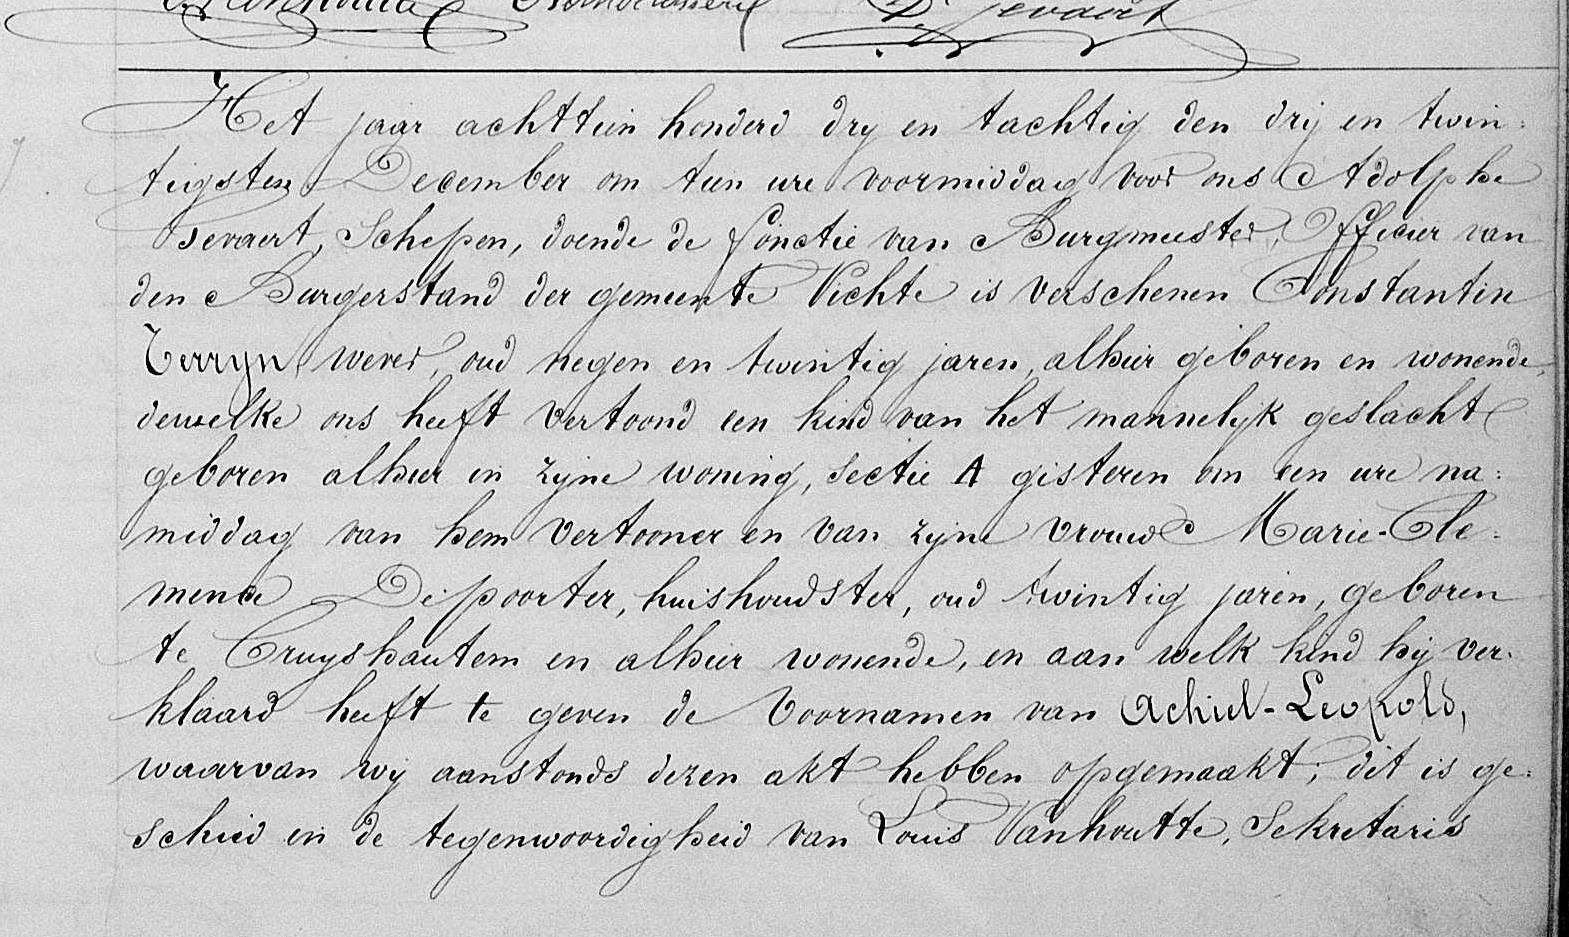 Gevaert
Het jaar achttien honderd dry en tachtig den drij en twin:
tigsten December om tien ure voormiddag voor ons Adolphe
Gevaert, Schepen, doende de fonctie van Burgmeester, Officier van
den Burgerstand der gemeente Vichte is verschenen Constantin
Terryn, wever, oud negen en twintig jaren, alhier geboren en wonende,
dewelke ons heeft vertoond een kind van het mannelijk geslacht
geboren alhier in zijne woning, sectie A gisteren om een ure na:
middag van hem vertooner en van zijne vrouwe Marie-Cle:
mence Depoorter, huishoudster, oud twintig jaren, geboren
te Cruyshautem en alhier wonende, en aan welk kind hij ver:
klaard heeft te geven de voornamen van Achiel-Leopold,
waarvan wij aanstonds dezen akt hebben opgemaakt; dit is ge:
schied in de tegenwoordigheid van Louis Vanhoutte, Sekretaris